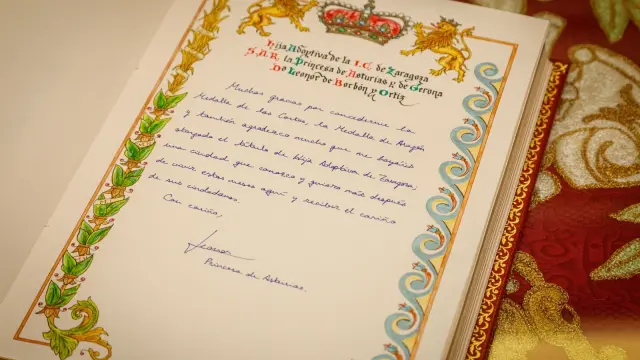 Hija Adoptiva de la I.C. de Zaragoza
S.A.R. la Princesa de Asturias y de Gerona
Dª Leonor de Borbón y Ortiz
Muchas gracias por concederme la
Medalla de las Cortes, la Medalla de Aragón
y también agradezco mucho que me hayáis
otorgado el título de Hija Adoptiva de Zaragoza,
una ciudad que conozco y quiero más después
de vivir estos meses aquí y recibir el cariño
de sus ciudadanos.
Con cariño,
Leonor
Princesa de Asturias.